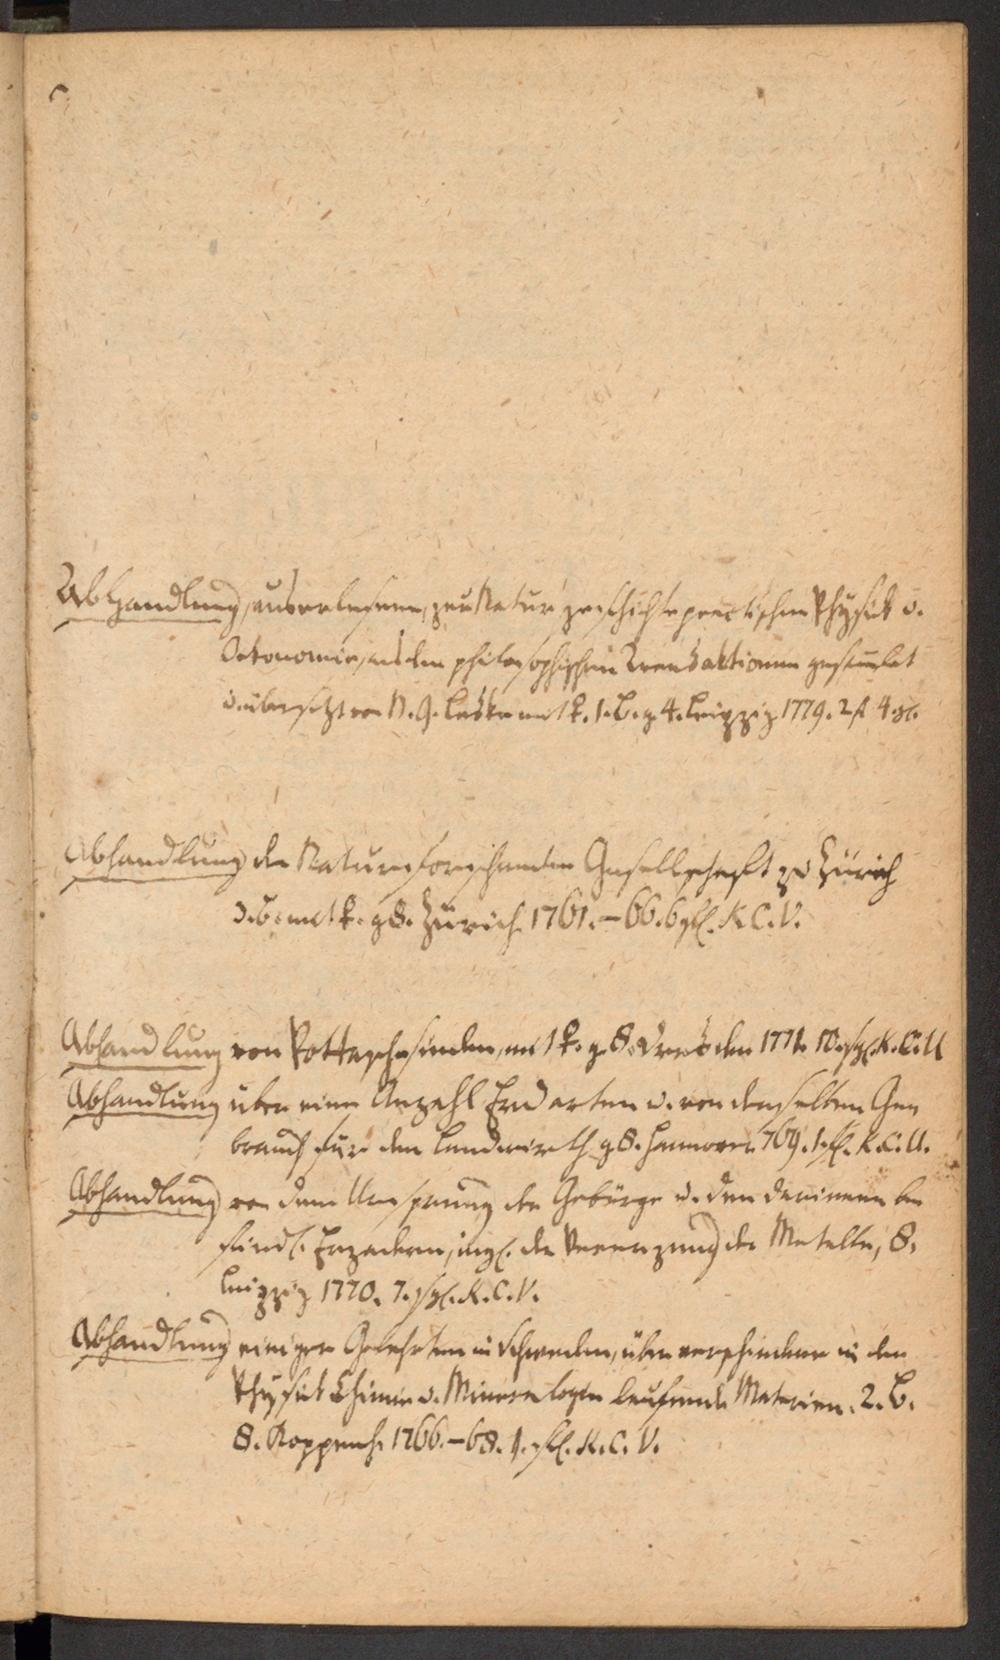 Abhandlung, auserlesene, zur Natur geschichte practischen Physick u.
Oekonomie, aus den philosophischen Transaktionen gesamelt
u. übersezt von N. G. Leske mit k. 1. B. g. 4. Leipzig 1779. 2 fl 4
Abhandlung der Naturforschenden Gesellschaft zu Zürich
3. B. mit k. g 8. Zürich 1761.–66. 6 K. C. V.
Abhandlung von Pottaschesieden, mit k. g. 8. Dresden 1771. 10 K. C. U
Abhandlung über eine Anzahl Erd arten u. von derselben Ge
brauch für den Landwirth g 8. Hannover 769. 1 K. C. U.
Abhandlung von dem Ursprung der Gebürge u. den darinnen be
findl. Erzadern, ingl. der Vererzung der Metalle, 8.
Leipzig 1770. 7. K. C. V.
Abhandlung einiger Gelehrten in Schweden, über verschiedene in den
Physick Chimie u. Mineralogie laufende Materien. 2. B.
8. Koppenh. 1766.–68. 1. K. C. V.